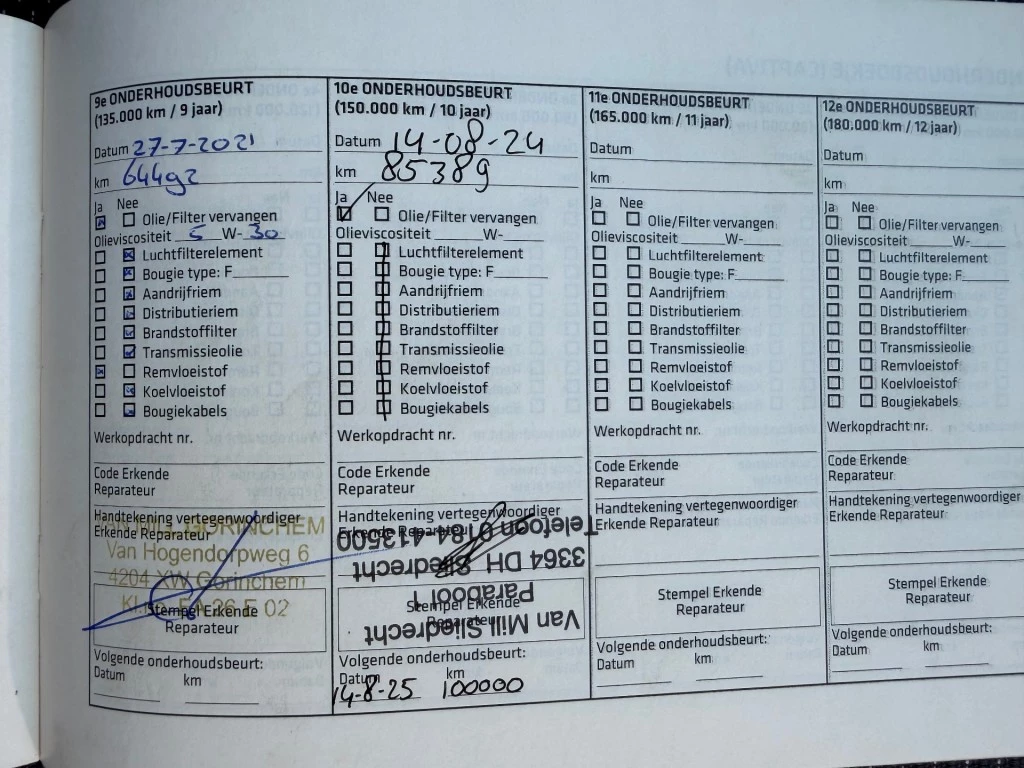 9e ONDERHOUDSBEURT
(135.000 km / 9 jaar)
Datum 27-7-2021
km 64492
Ja Nee
Olie/Filter vervangen
Olieviscositeit 5 W- 30
Luchtfilterelement
Bougie type: F
Aandrijfriem
Distributieriem
Brandstoffilter
Transmissieolie
Remvloeistof
Koelvloeistof
Bougiekabels
Werkopdracht nr.
Code Erkende
Reparateur
Handtekening vertegenwoordiger
Erkende Reparateur
GORINCHEM
Van Hogendorpweg 6
4204 XW Gorinchem
Stempel Erkende
Reparateur
Volgende onderhoudsbeurt:
Datum km
10e ONDERHOUDSBEURT
(150.000 km / 10 jaar)
Datum 14-08-24
km 85389
Ja Nee
Olie/Filter vervangen
Olieviscositeit W-
Luchtfilterelement
Bougie type: F
Aandrijfriem
Distributieriem
Brandstoffilter
Transmissieolie
Remvloeistof
Koelvloeistof
Bougiekabels
Werkopdracht nr.
Code Erkende
Reparateur
Handtekening vertegenwoordiger
Erkende Reparateur
Van Mill Sliedrecht
Parabool 1
3364 DH Sliedrecht
Telefoon 0184-413500
Stempel Erkende
Reparateur
Volgende onderhoudsbeurt:
Datum km
14-8-25 100000
11e ONDERHOUDSBEURT
(165.000 km / 11 jaar)
Datum
km
Ja Nee
Olie/Filter vervangen
Olieviscositeit W-
Luchtfilterelement
Bougie type: F
Aandrijfriem
Distributieriem
Brandstoffilter
Transmissieolie
Remvloeistof
Koelvloeistof
Bougiekabels
Werkopdracht nr.
Code Erkende
Reparateur
Handtekening vertegenwoordiger
Erkende Reparateur
Stempel Erkende
Reparateur
Volgende onderhoudsbeurt:
Datum km
12e ONDERHOUDSBEURT
(180.000 km / 12 jaar)
Datum
km
Ja Nee
Olie/Filter vervangen
Olieviscositeit W-
Luchtfilterelement
Bougie type: F
Aandrijfriem
Distributieriem
Brandstoffilter
Transmissieolie
Remvloeistof
Koelvloeistof
Bougiekabels
Werkopdracht nr.
Code Erkende
Reparateur
Handtekening vertegenwoordiger
Erkende Reparateur
Stempel Erkende
Reparateur
Volgende onderhoudsbeurt:
Datum km